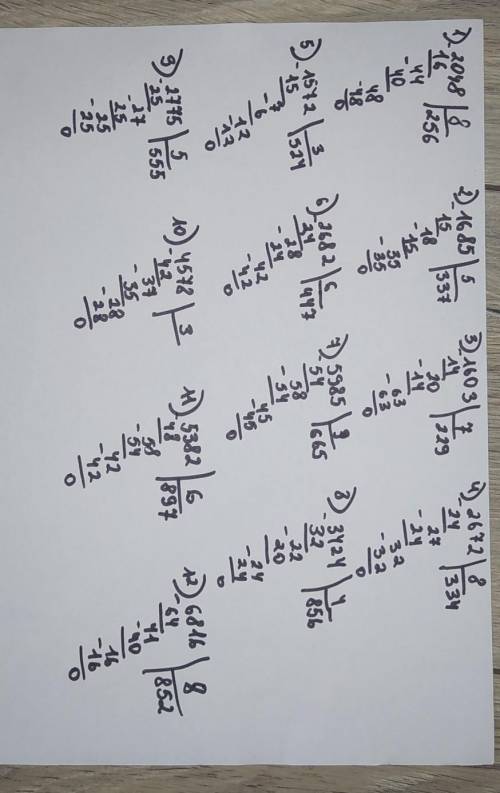 1) -2048 | 8
16 | 256
-44
40
-48
48
0
2) -1685 | 5
15 | 337
-18
15
-35
35
0
3) -1603 | 7
14 | 229
-20
14
-63
63
0
4) -2672 | 8
24 | 334
-27
24
-32
32
0
5) -1572 | 3
15 | 524
-7
6
-12
12
0
6) -2682 | 6
24 | 447
-28
24
-42
42
0
7) -5985 | 9
54 | 665
-58
54
-45
45
0
8) -3424 | 4
32 | 856
-22
20
-24
24
0
9) -2775 | 5
25 | 555
-27
25
-25
25
0
10) -4578 | 3
42
-37
35
-28
28
0
11) -5382 | 6
48 | 897
-58
54
-42
42
0
12) -6816 | 8
64 | 852
-41
40
-16
16
0